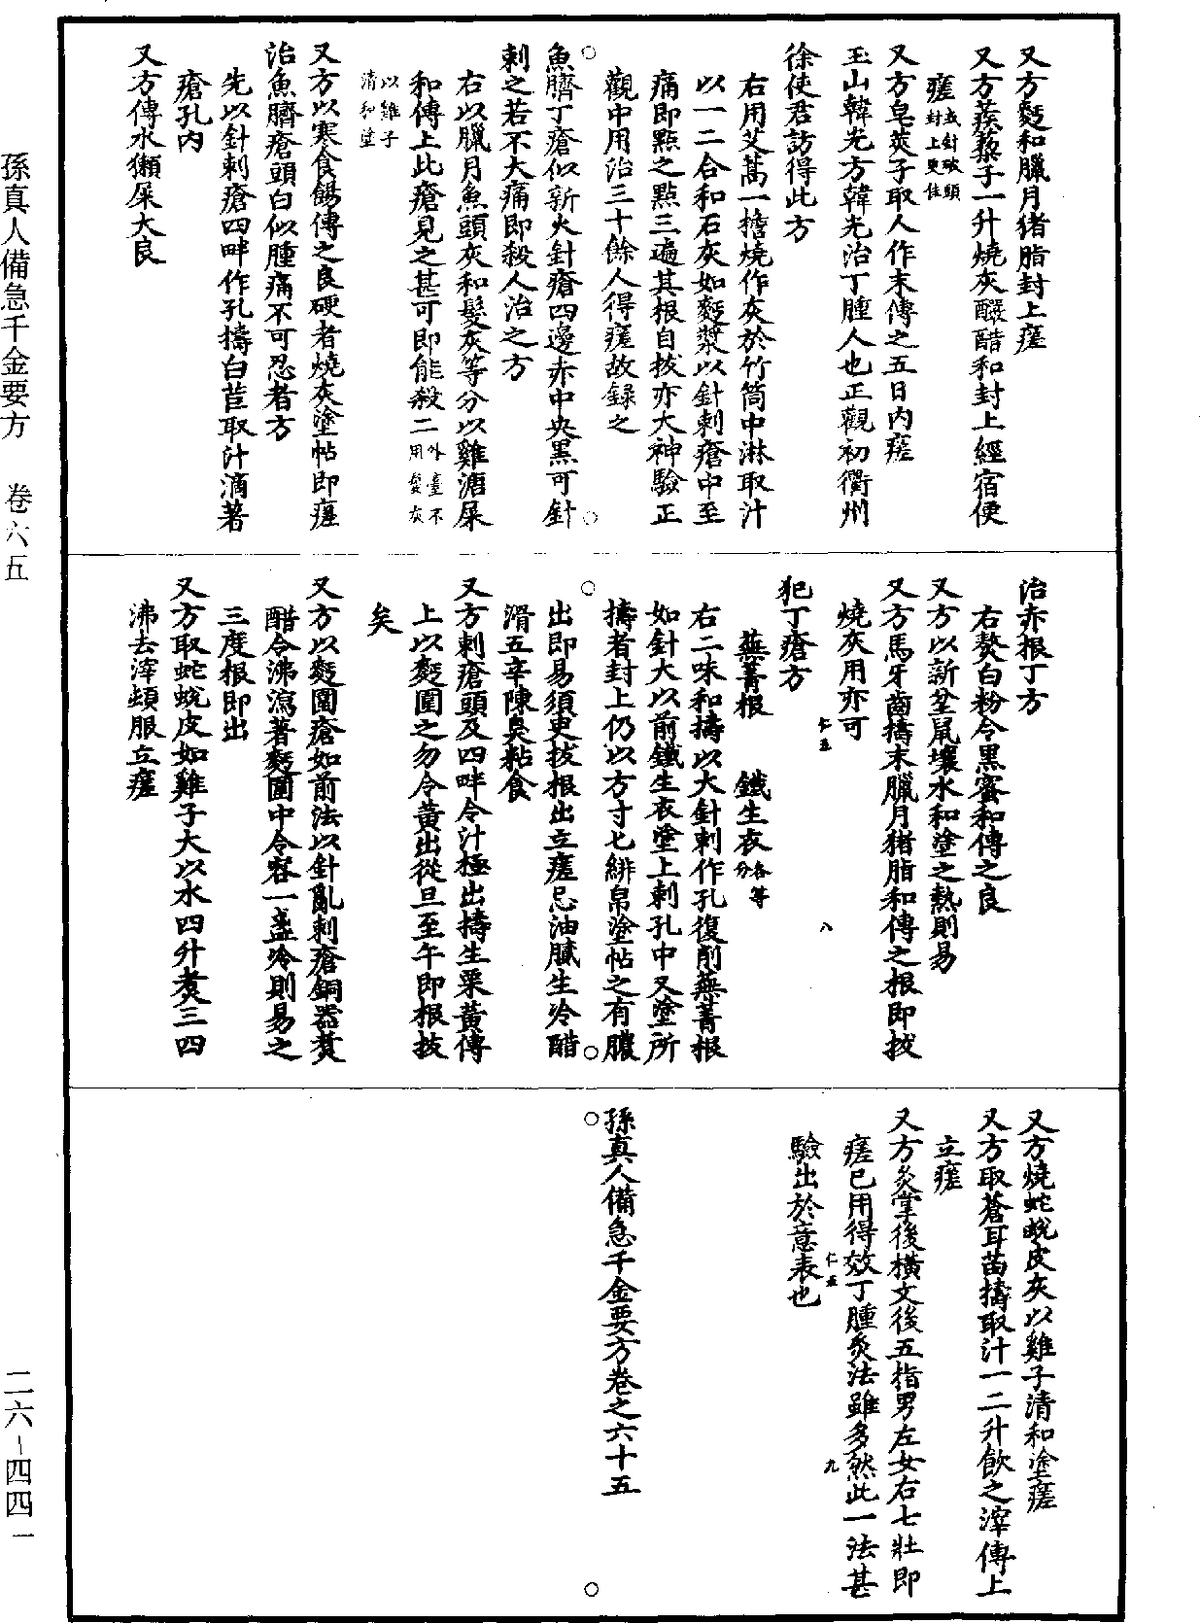 又方麪和臘月猪脂封上瘥
又方蒺藜子一升燒灰釅醋和封上經宿便
瘥或針破頭封上更佳
又方皂莢子取人作末傅之五日內瘥
玉山韓光方韓光治丁腫人也正觀初衢州
徐使君訪得此方
右用艾蒿一擔燒作灰於竹筒中淋取汁
以一二合和石灰如麪漿以針刺瘡中至
痛即點之點三遍其根自拔亦大神驗正
觀中用治三十餘人得瘥故錄之
魚臍丁瘡似新火針瘡四邊赤中央黑可針
刺之若不大痛即殺人治之方
右以臘月魚頭灰和髮灰等分以雞溏屎
和傅上此瘡見之甚可即能殺二外臺不用髮灰
以雞子清和塗
又方以寒食餳傅之良硬者燒灰塗帖即瘥
治魚臍瘡頭白似腫痛不可忍者方
先以針刺瘡四畔作孔擣白苣取汁滴著
瘡孔內
又方傅水獺屎大良
治赤根丁方
右熬白粉令黑蜜和傅之良
又方以新坌鼠壤水和塗之熱則易
又方馬牙齒擣末臘月猪脂和傅之根即拔
燒灰用亦可
仁五 八
犯丁瘡方
蕪菁根 鐵生衣各等分
右二味和擣以大針刺作孔復削蕪菁根
如針大以前鐵生衣塗上刺孔中又塗所
擣者封上仍以方寸匕緋帛塗帖之有膿
出即易須更拔根出立瘥忌油膩生冷醋
滑五辛陳臭粘食
又方刺瘡頭及四畔令汁極出擣生栗黃傅
上以麪圍之勿令黃出從旦至午即根拔
矣
又方以麪圍瘡如前法以針亂刺瘡銅器煮
醋令沸瀉著麪圍中令容一盞冷則易之
三度根即出
又方取蛇蛻皮如雞子大以水四升煮三四
沸去滓頓服立瘥
又方燒蛇蛻皮灰以雞子清和塗瘥
又方取蒼耳苗擣取汁一二升飲之滓傅上
立瘥
又方灸掌後橫文後五指男左女右七壯即
瘥已用得效丁腫灸法雖多然此一法甚
仁五 九
驗出於意表也
孫真人備急千金要方卷之六十五
孫真人備急千金要方 卷六五
二六-四四一